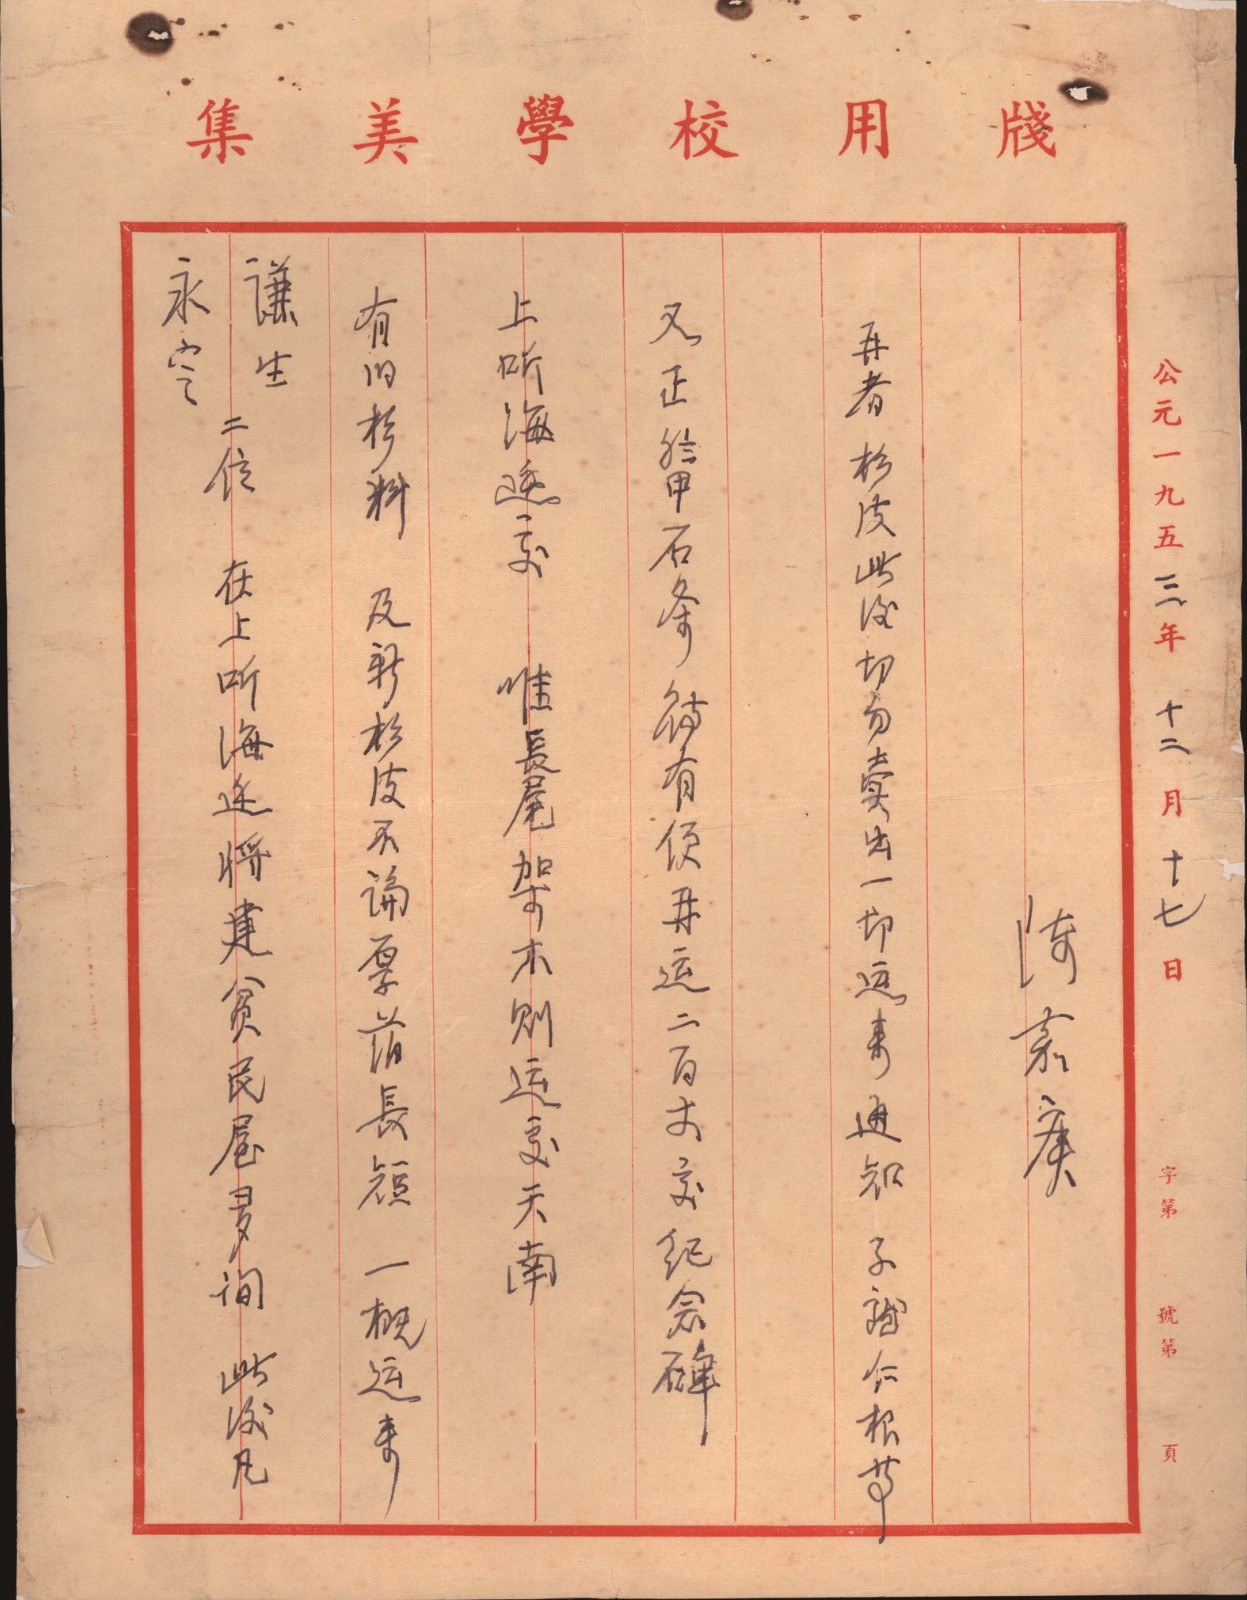 集美學校用牋
謙生
永定
二位 在上听海边將建貧民屋多间 此后凡
有旧杉料 及新杉皮不論厚薄長短 一概运来
上听海边交 惟長尾架木则运交天南
又正甲石条 待有便再运二百丈交纪念碑
再者杉皮此后切勿卖出一切运来通知 子 仁根等
陈嘉庚
公元一九五三年 十二月 十七日 字第 號第 頁